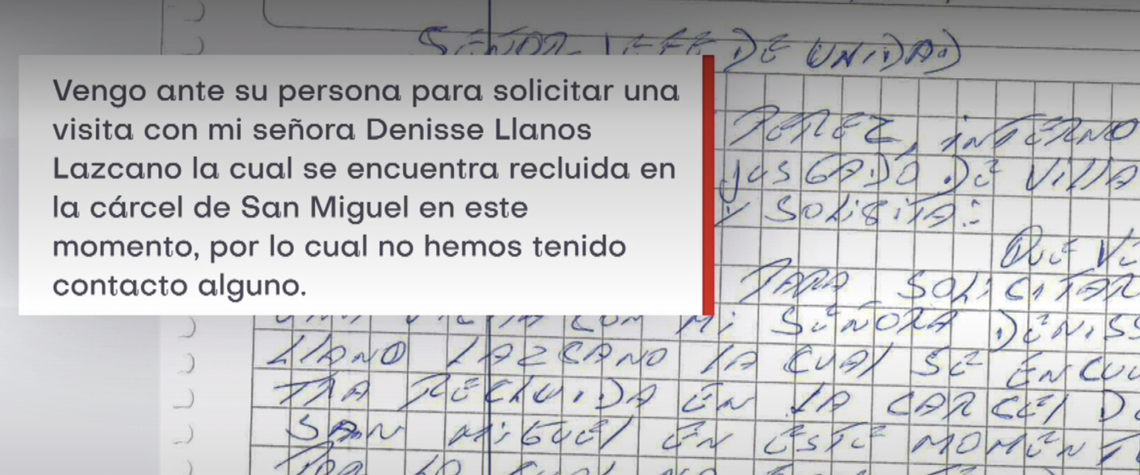 SEÑOR JEFE DE UNIDAD
Vengo ante su persona para solicitar una
visita con mi señora Denisse Llanos
Lazcano la cual se encuentra recluida en
la cárcel de San Miguel en este
momento, por lo cual no hemos tenido
contacto alguno.
PEREZ, INTERNO
JUSGADO DE VILLA
Y SOLISITA:
QUE VE
PARA SOLICITAR
UNA VISITA CON MI SEÑORA DENISS
LLANO LAZCANO LA CUAL SE ENCUE
TRA RECLUIDA EN LA CARCEL DE
SAN MIGUEL EN ESTE MOMENT
POR LO CUAL NO HE